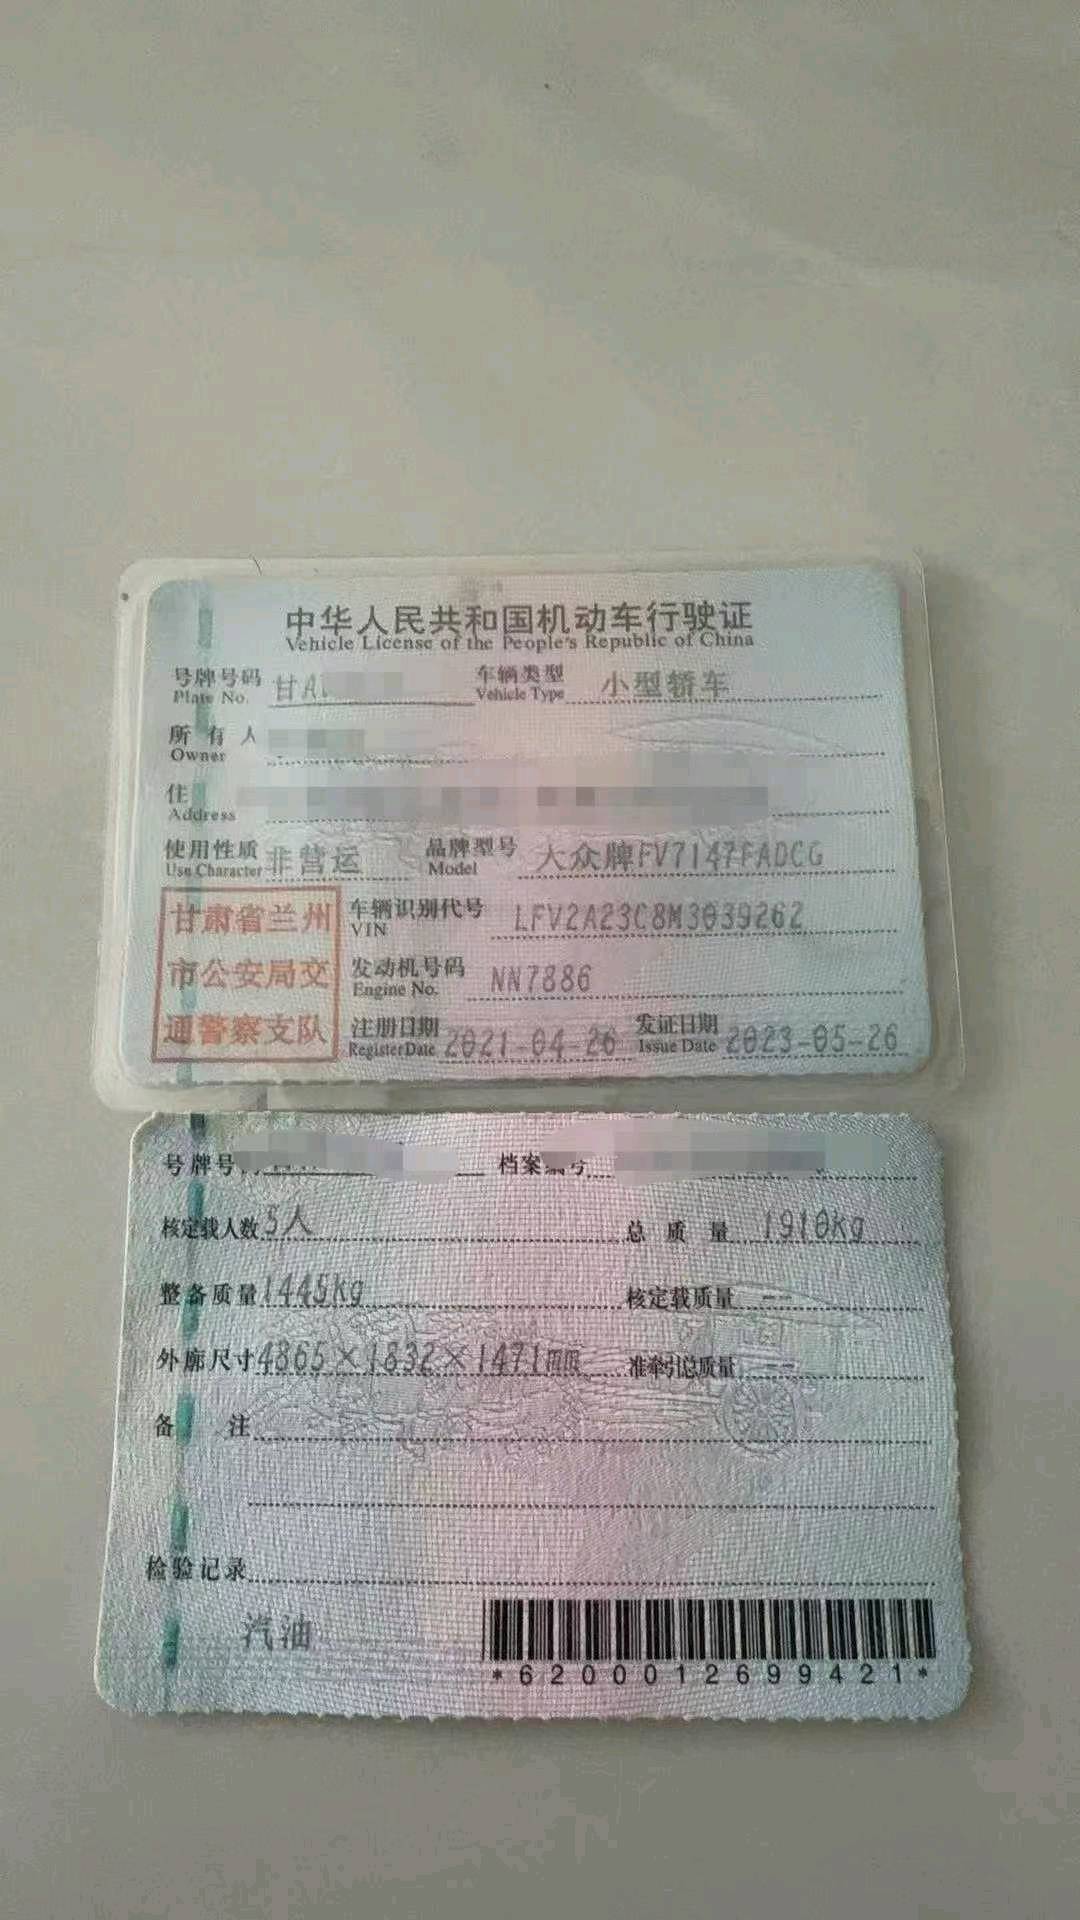 中华人民共和国机动车行驶证
Vehicle License of the People's Republic of China
号牌号码 甘A 车辆类型 小型轿车
Plate No. Vehicle Type
所有人
Owner
住
Address
使用性质 非营运 品牌型号 大众牌FV7147FADCG
Use Character Model
甘肃省兰州 车辆识别代号 LFV2A23C8M3039262
VIN
市公安局交 发动机号码 NN7886
Engine No.
通警察支队 注册日期 2021-04-26 发证日期 2023-05-26
Register Date Issue Date
号牌号 档案编号
核定载人数 5人 总质量 1910kg
整备质量 1445kg 核定载质量 --
外廓尺寸 4865×1832×1471mm 准牵引总质量 --
备注
检验记录
汽油
*6200012699421*